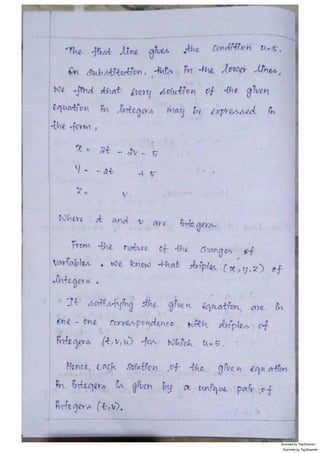 The first line gives the condition u=5.
On substitution, this in the lower lines,
we find that every solution of the given
equation in integers may be expressed in
the form,
x = 2t - 2v - 5
y = -2t + 5
z = v.
Where t and v are integers.
From the nature of the changes of
variables. we know that triples (x,y,z) of
integers.
It satisfying the given equation, are in
one-one correspondence with triples of
integers (t,v,u) for which u=5.
Hence, each solution of the given equation
in integers is given by a unique pair of
integers (t,v).
Scanned by TapScanner
Scanned by TapScanner